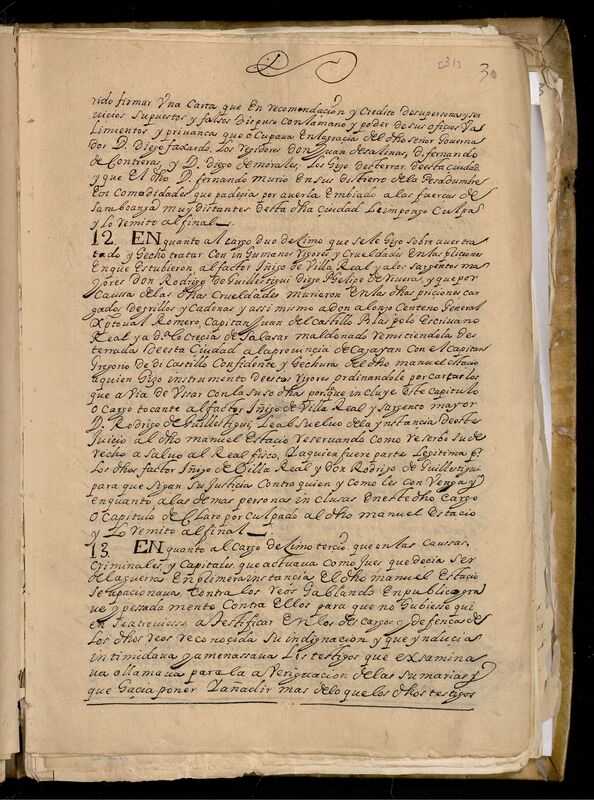 30
rido firmar Vna Carta que En recomendaçion y Credito desupersona y ser
uicios Supuestos y falsos Dispuso conlamano y poder desus oficios Va
limientos y priuanca que ocupaua Enlagracia del dho señor Gouerna
dor D. diego faxardo, Los Regidores Don Juan desalinas, D. fernando
de Contreras, y D. diego demorales, Los hiço desterrar desta ciudad
y que El dho D. fernando murio Ensu distierro dela Pesadumbre
Eincomodidades que padeçia por auerla Embiado a las fuercas de
Samboanga muy distantes desta dha ciudad Leimpongo Culpas
y Lo Remito al final
12. EN quanto al cargo duodeçimo que sele hiço sobre auertra
tado y hecho tratar Con in humanos Rigores y Crueldades Enlas priciones
Enque Estubieron al factor Iñigo de Villa Real y alos sargentos ma
yores don Rodrigo De Guillestigui Diego Phelipe de Riuera, y que por
Caussa delas dhas Crueldades murieron En las dhas priciones car
gados degrillos y Cadenas y assi mismo adon alonso Centeno General
Xptoual Romero, Capitan Juan del castillo Blas polo Escriuano
Real y a d.ª Locrecia de Salasar maldonado Remiciendola des
terrada Desta Ciudad a laprouincia de Cagayan Con el Capitan
Gregorio de di Castillo Confidente y hechura del dho manuel estacio
aquien hiço instrumento destos Rigores ordinandole por cartas los
que a Via de Vsar Con la suso dha porque incluye Este capitulo
O Cargo tocante al factor Iñigo de Villa Real y Sargento mayor
D. Rodrigo de Guillestigui, Le absuelvo dela ynstancia deeste
Juicio al dho manuel Estacio Reseruando como Reserbo su de
recho a Saluo al Real fisco, Y aquien fuere parte Legitima pr
Los dhos factor Iñigo de Villa Real y Don Rodrigo de Guillestigui
para que sigan su Justicia Contra quien y como les con Venga y
enquanto, a las de mas personas in clusas Eneste dho Cargo
O Capitulo declaro por culpado al dho manuel Estacio
y Lo Remito al final
13. EN quanto al Cargo deçimo tercio, que en las Caussas
Criminales, y Capitales, que actuaua como Jues que decia Ser
dela guerra En primera instancia El dho manuel Estacio
Se apacionaua Contra los reos hablando En publico gra
ue y pesada mente Contra Ellos para que no hubiesse qui
en Seatreuiesse a Testificar En los descargos y defencas de
Los dhos reos reconocida Su indignacion y que ynducia
intimidaua y amenassaua Los testigos que examina
ua o llamaua para la a Veriguacion de las sumarias y
que haçia poner Y añadir mas de lo que los dhos testigos